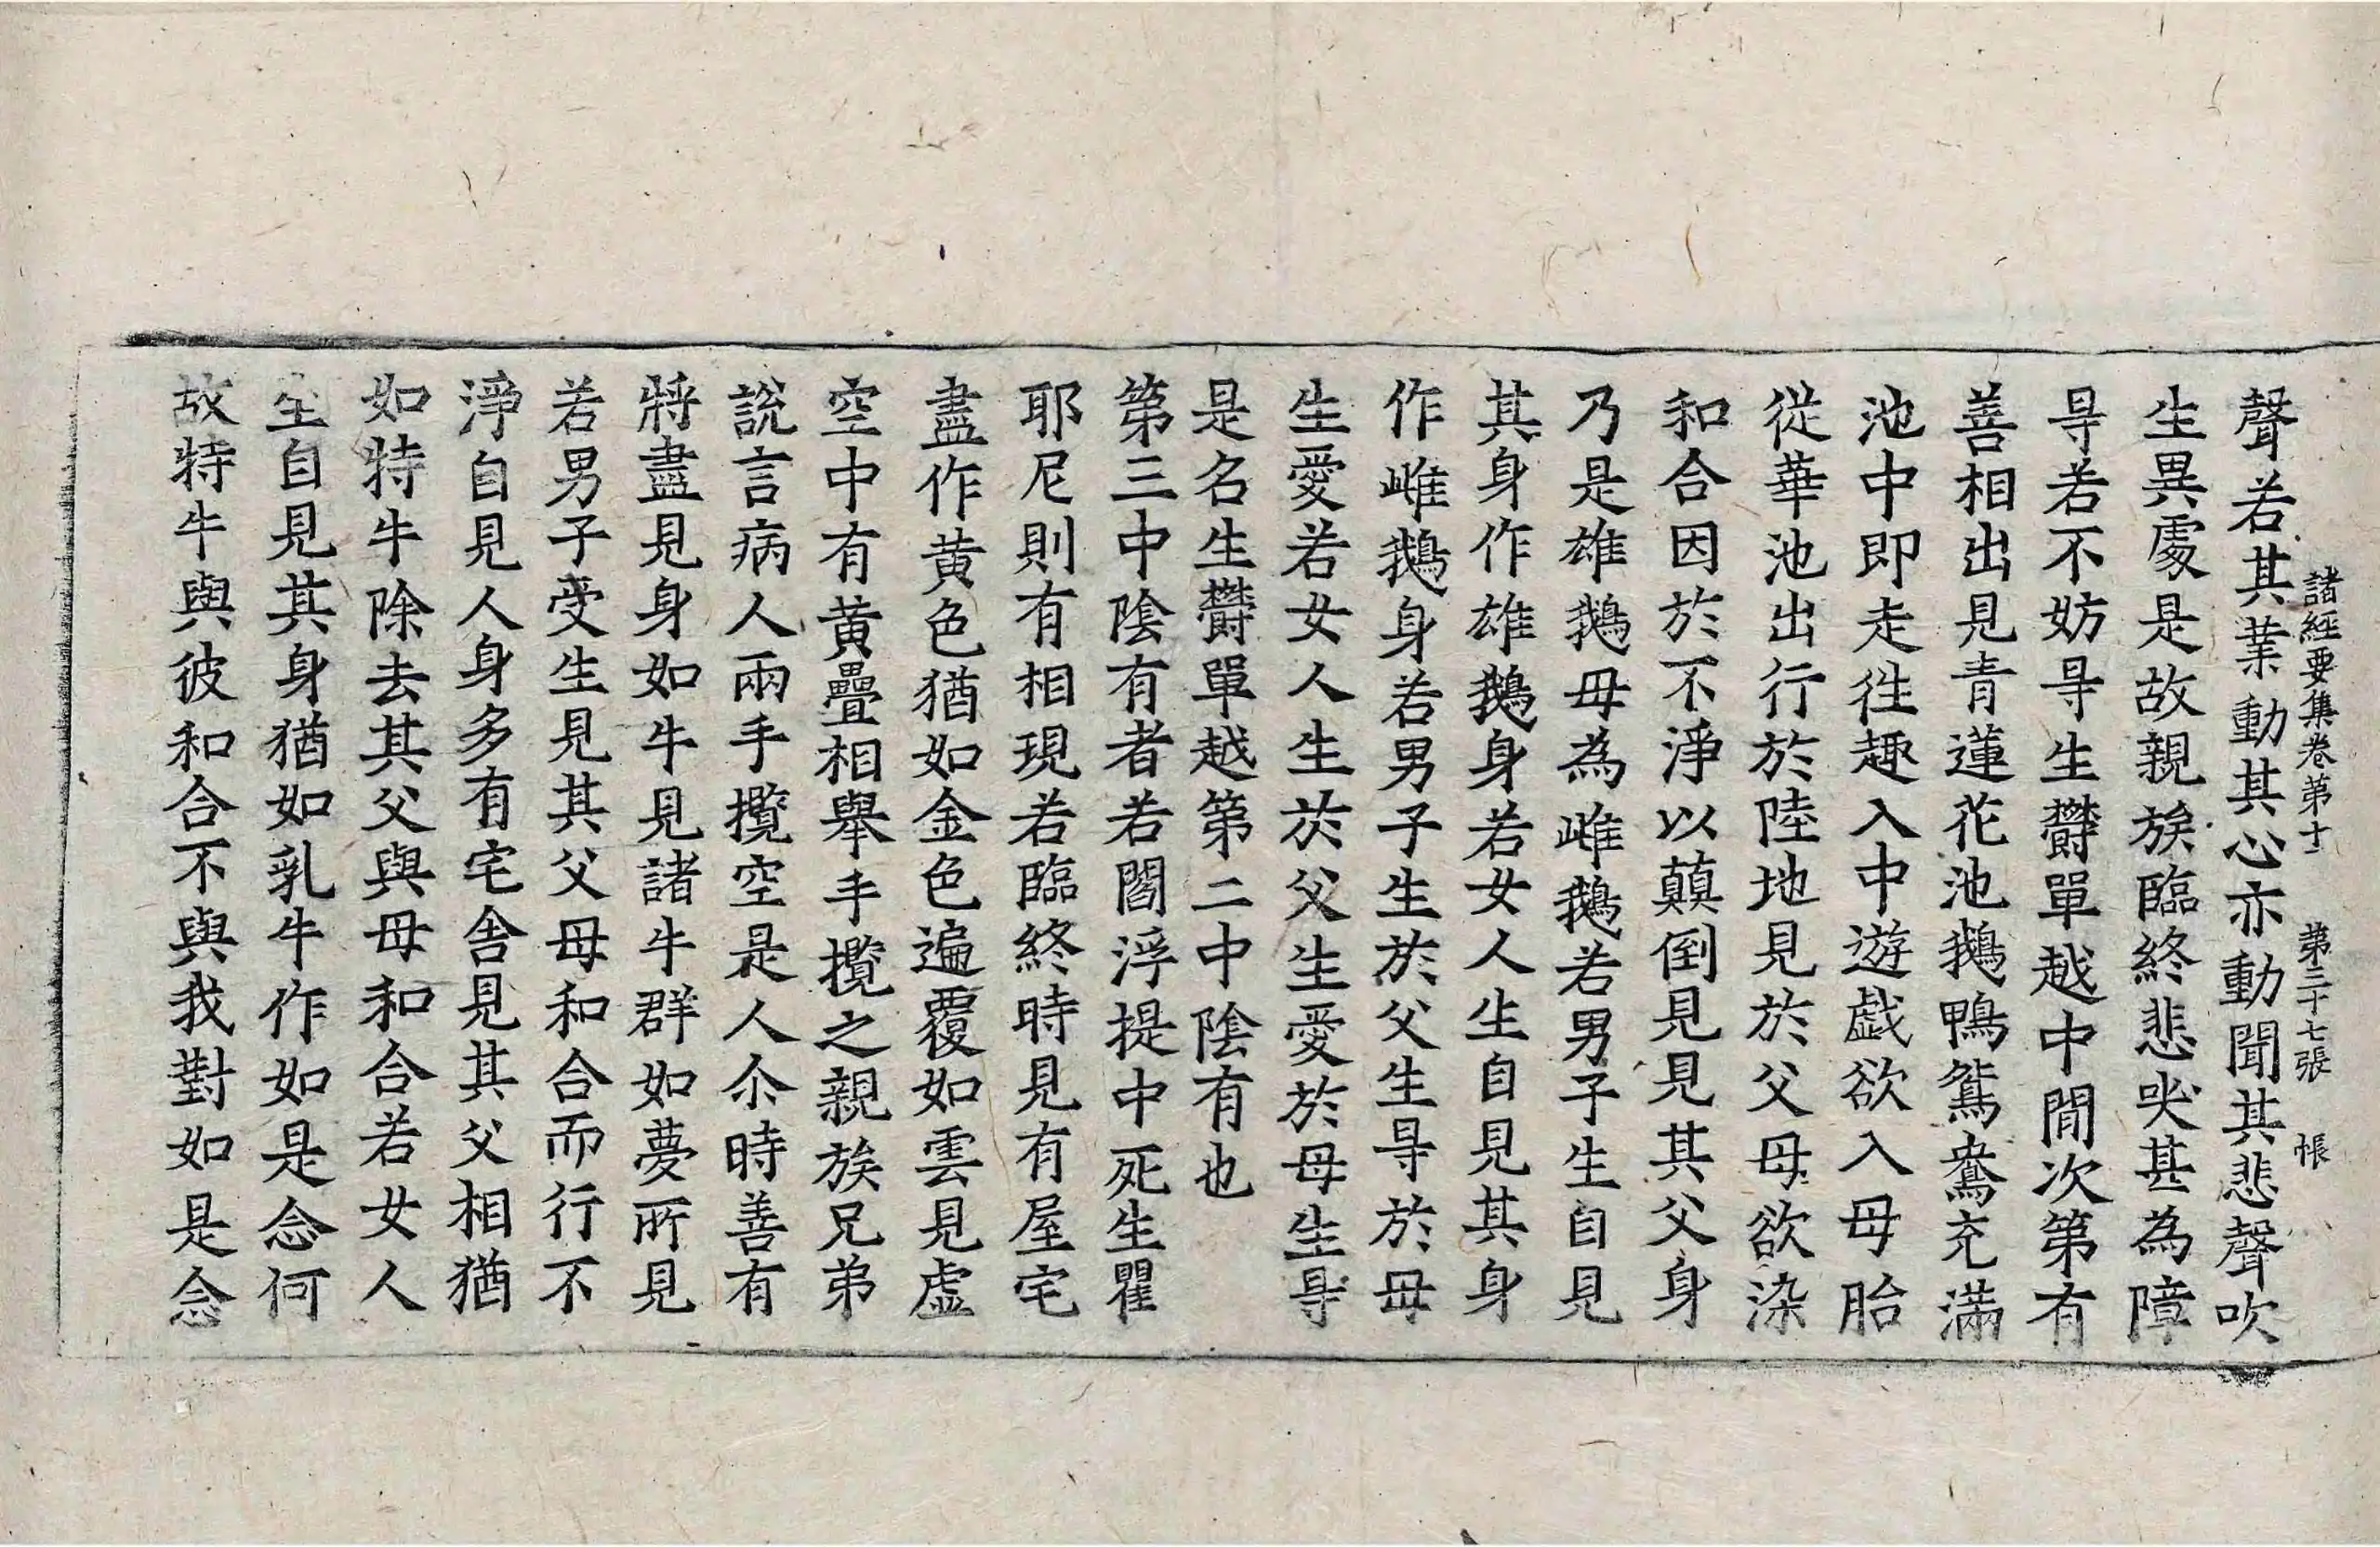 諸經要集卷第十 第三十七張 帳
聲若其業動其心亦動聞其悲聲吹
生異處是故親族臨終悲哭甚為障
㝵若不妨㝵生欝單越中間次第有
善相出見青蓮花池鵝鴨鴛鴦充滿
池中即走往趣入中遊戲欲入母胎
從華池出行於陸地見於父母欲染
和合因於不淨以顛倒見見其父身
乃是雄鵝母為雌鵝若男子生自見
其身作雄鵝身若女人生自見其身
作雌鵝身若男子生於父生㝵於母
生愛若女人生於父生愛於母生㝵
是名生欝單越第二中陰有也
第三中陰有者若閻浮提中死生瞿
耶尼則有相現若臨終時見有屋宅
盡作黄色猶如金色遍覆如雲見虛
空中有黄疊相舉手攬之親族兄弟
說言病人兩手攬空是人尒時善有
將盡見身如牛見諸牛群如夢所見
若男子受生見其父母和合而行不
淨自見人身多有宅舍見其父相猶
如特牛除去其父與母和合若女人
生自見其身猶如乳牛作如是念何
故特牛與彼和合不與我對如是念